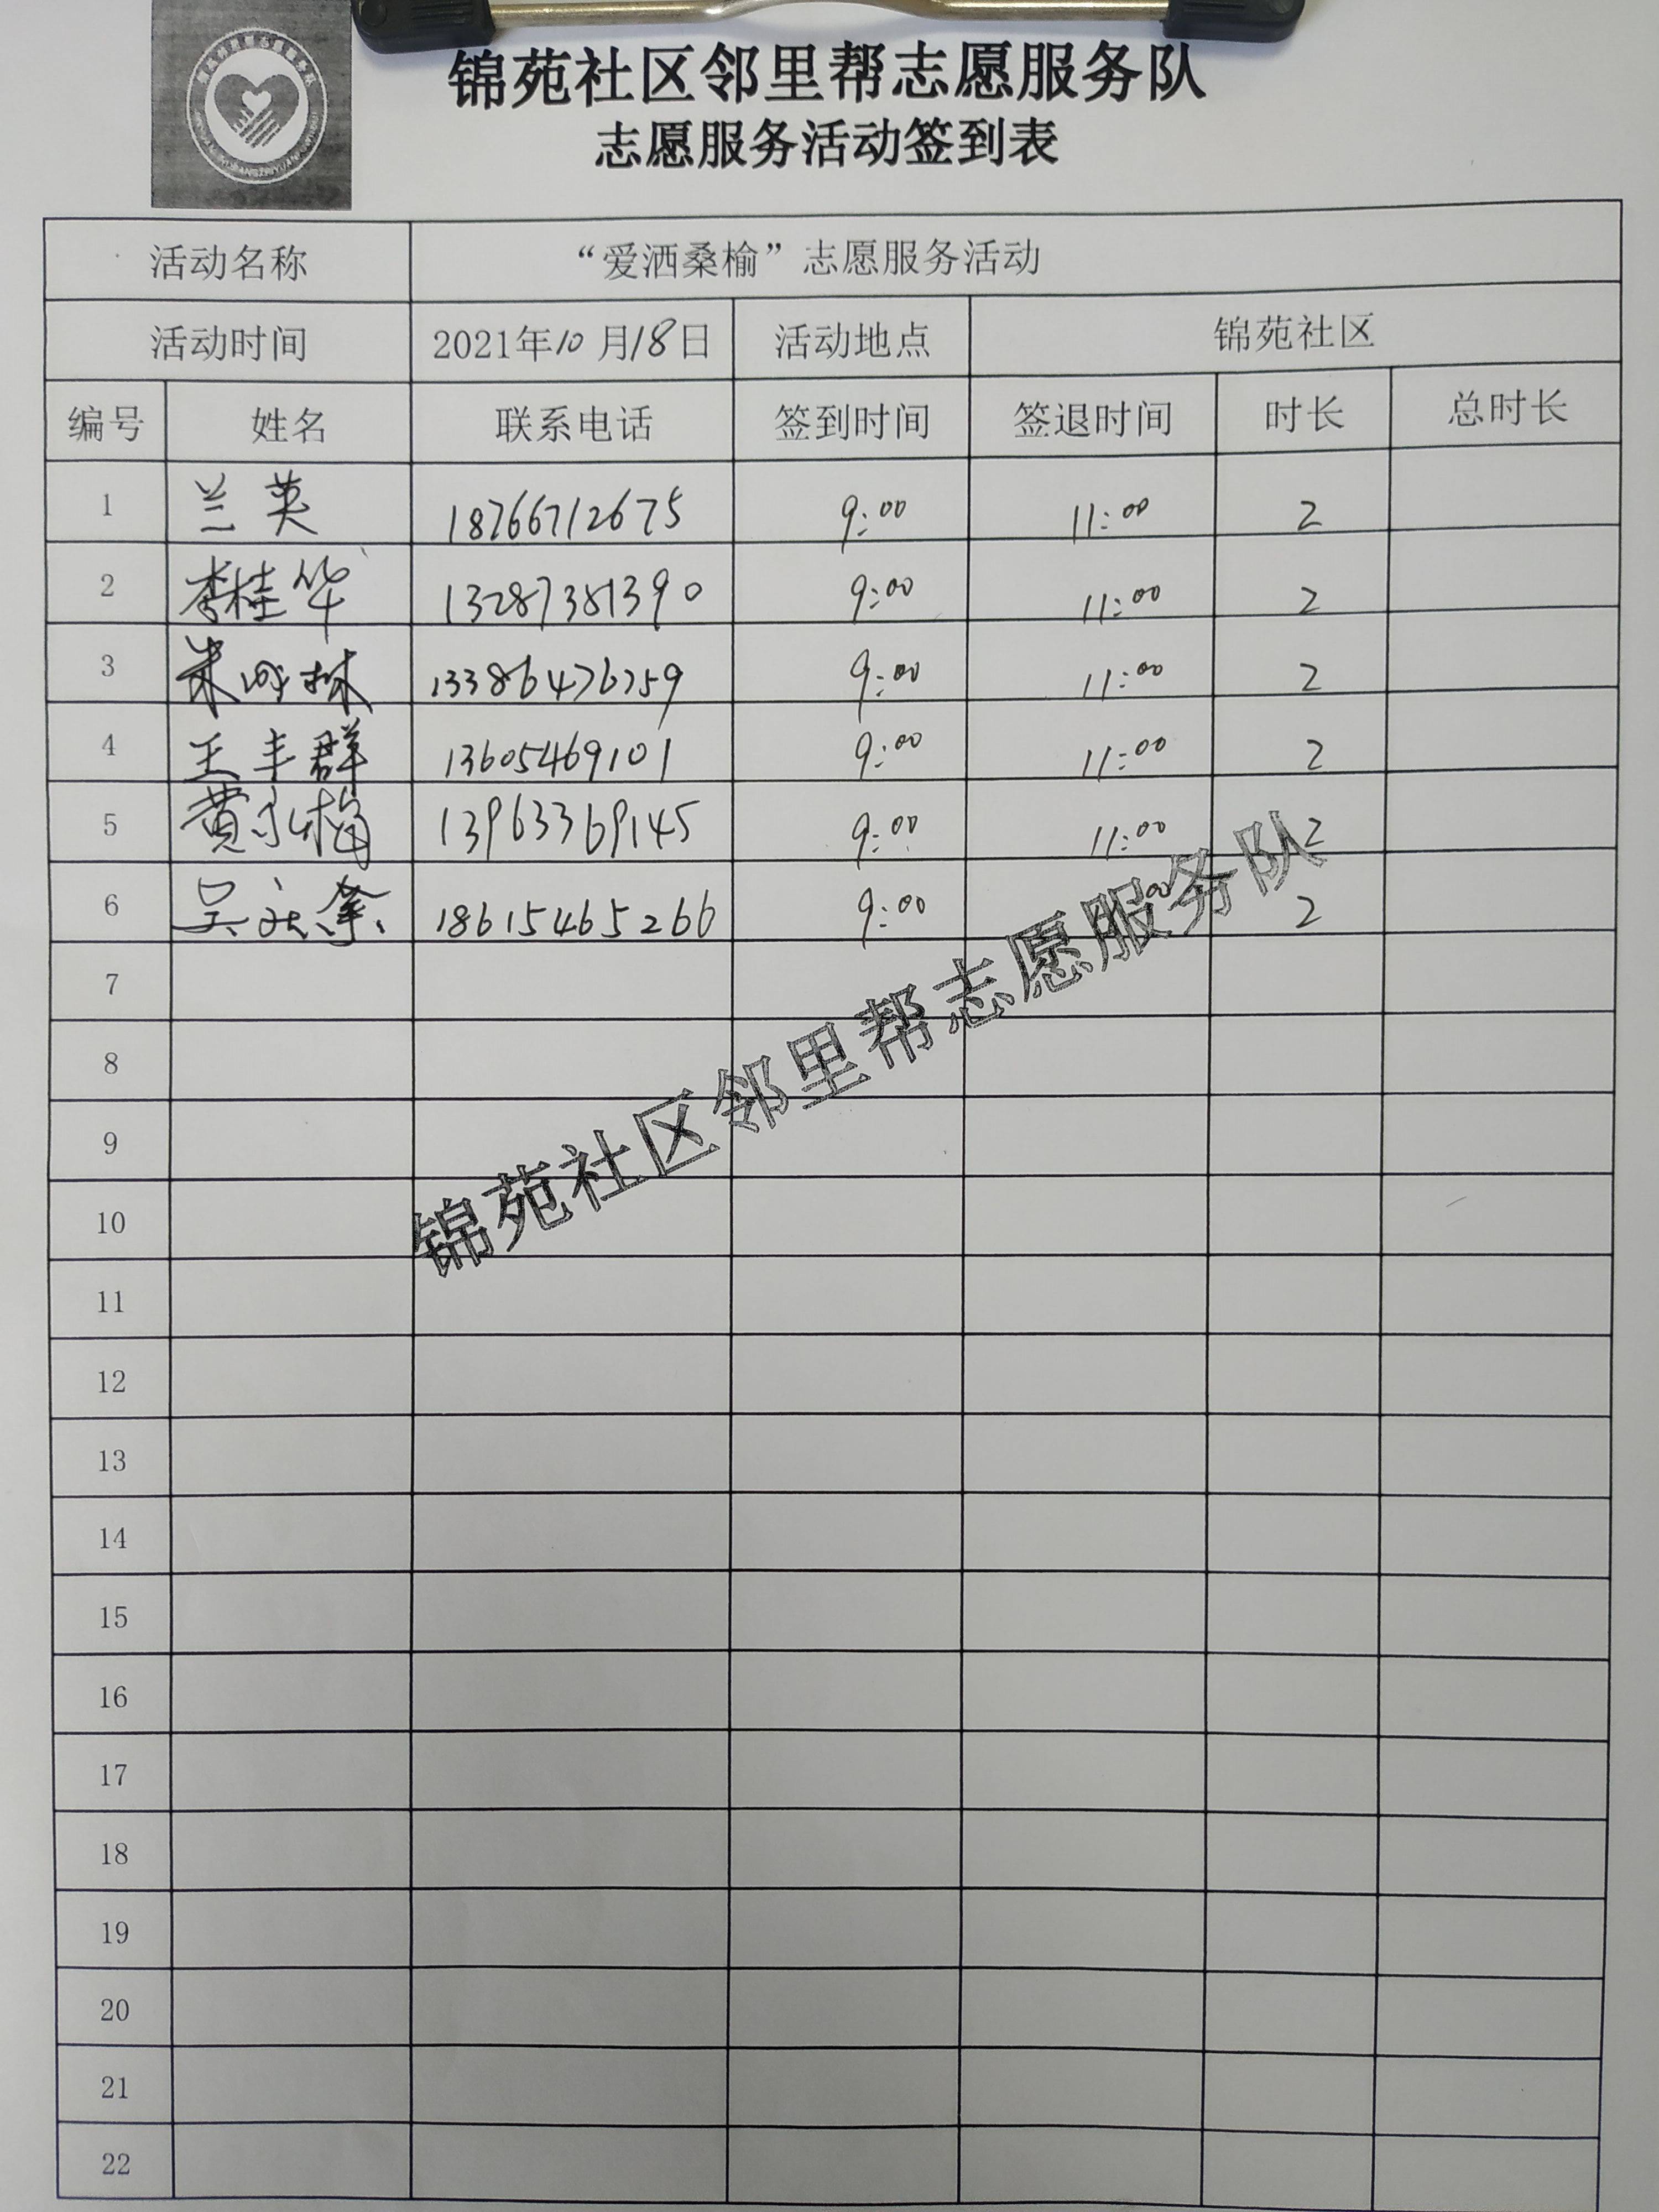 锦苑社区邻里帮志愿服务队
志愿服务活动签到表
活动名称 “爱洒桑榆”志愿服务活动
活动时间 2021年10月18日 活动地点 锦苑社区
编号 姓名 联系电话 签到时间 签退时间 时长 总时长
1 兰英 18766712675 9:00 11:00 2
2 李桂华 13287381390 9:00 11:00 2
3 13386476759 9:00 11:00 2
4 王丰群 13605469101 9:00 11:00 2
5 黄永梅 13963369145 9:00 11:00 2
6 吴 18615465266 9:00 2
7
8
9
10
11
12
13
14
15
16
17
18
19
20
21
22
锦苑社区邻里帮志愿服务队